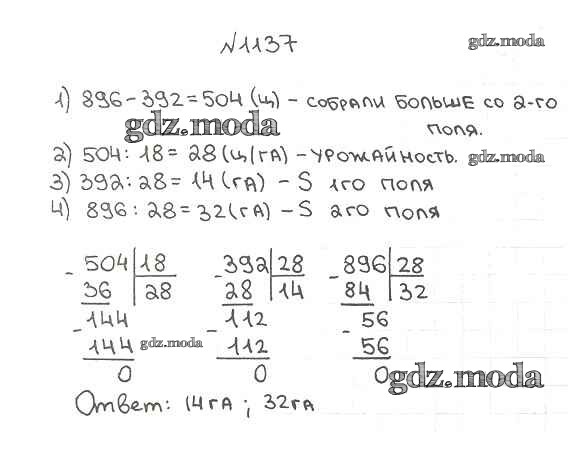 №1137
gdz.moda
1) 896-392=504 (ц) - собрали больше со 2-го
gdz.moda
поля.
2) 504:18=28 (ц/га) - урожайность. gdz.moda
3) 392:28=14 (га) - S 1го поля
4) 896:28=32 (га) - S 2го поля
504 18 392 28 896 28
36 28 28 14 84 32
144 112 56
144 gdz.moda 112 56
0 0 0 gdz.moda
Ответ: 14га ; 32га